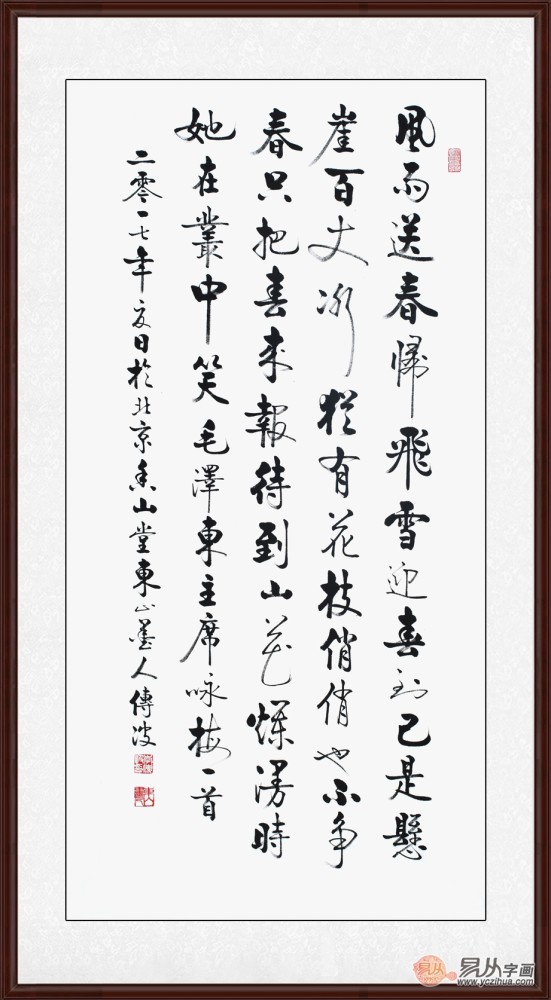 風雨送春歸飛雪迎春到已是懸
崖百丈冰猶有花枝俏俏也不争
春只把春來報待到山花爛漫時
她在叢中笑毛澤東主席咏梅一首
二零一七年夏日於北京香山堂東山墨人傳波
易从字画
www.yczihua.com